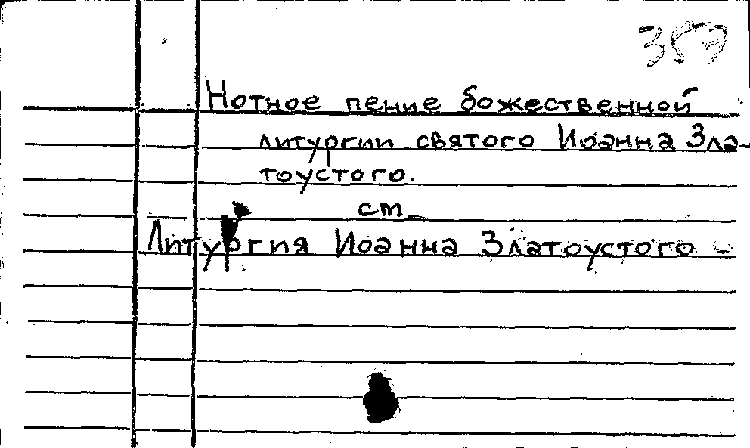 357
Нотное пение божественной
литургии святого Иоанна Зла-
тоустого.
ст.
Литургия Иоанна Златоустого -